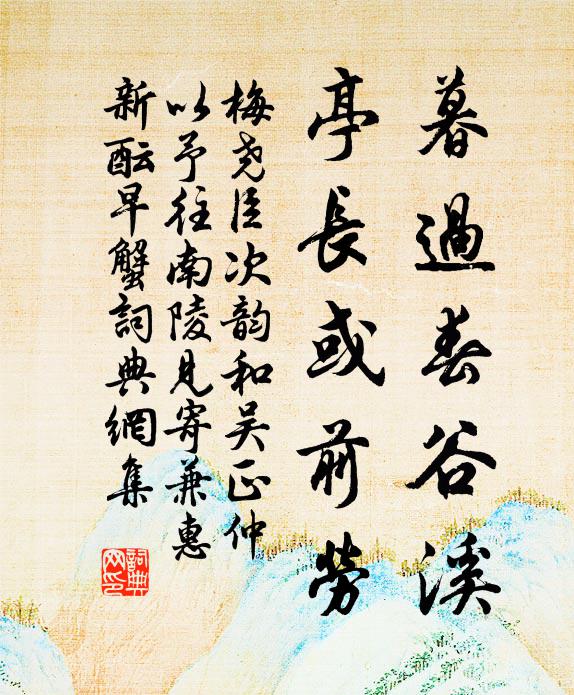 暮過春谷溪
亭長或前勞
梅尧臣次韵和吴正仲
以予往南陵见寄兼惠
新酝早蟹詞典網集
詞典